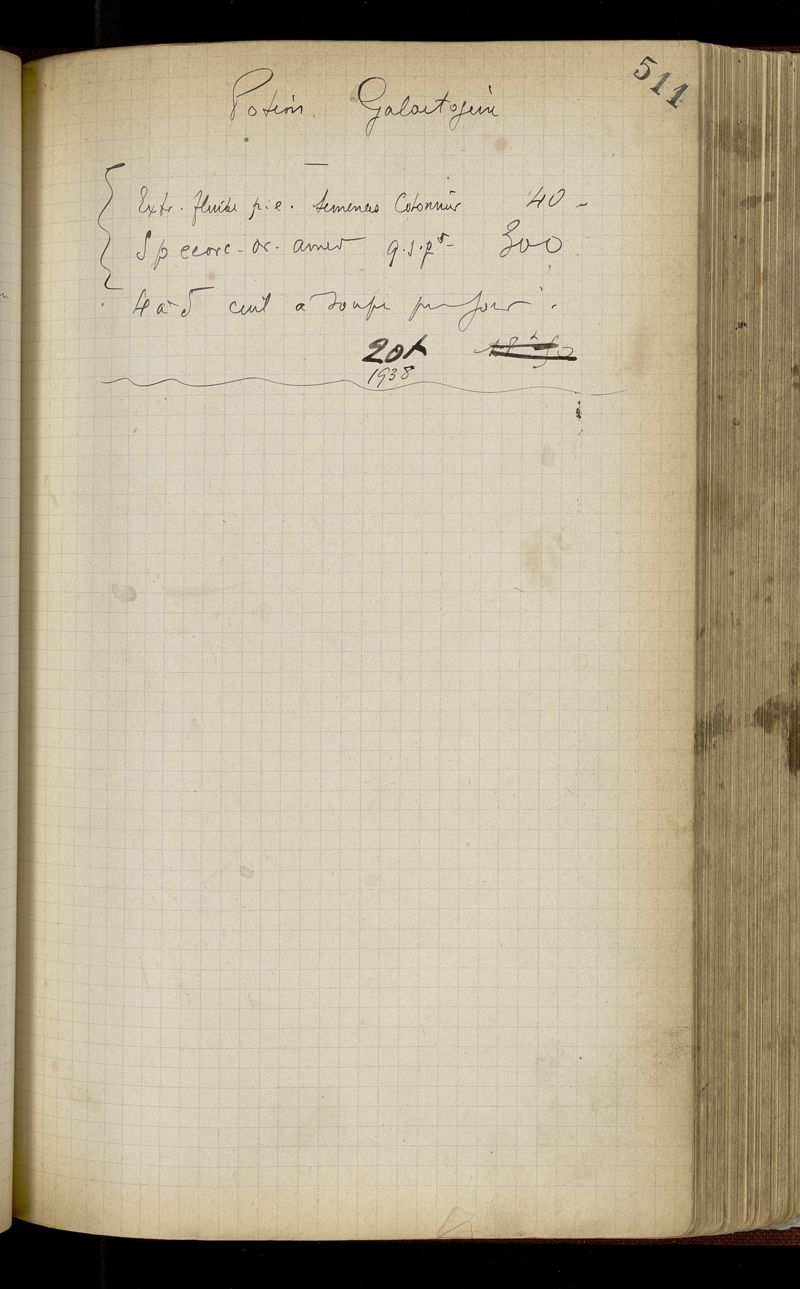 511
Potion Galactogène
Extr. fluide p. e. semences Cotonnier 40 -
Sp ecorc. or. amer q.s.pr 300
4 à 5 cuil à soupe par jour.
20f
1938